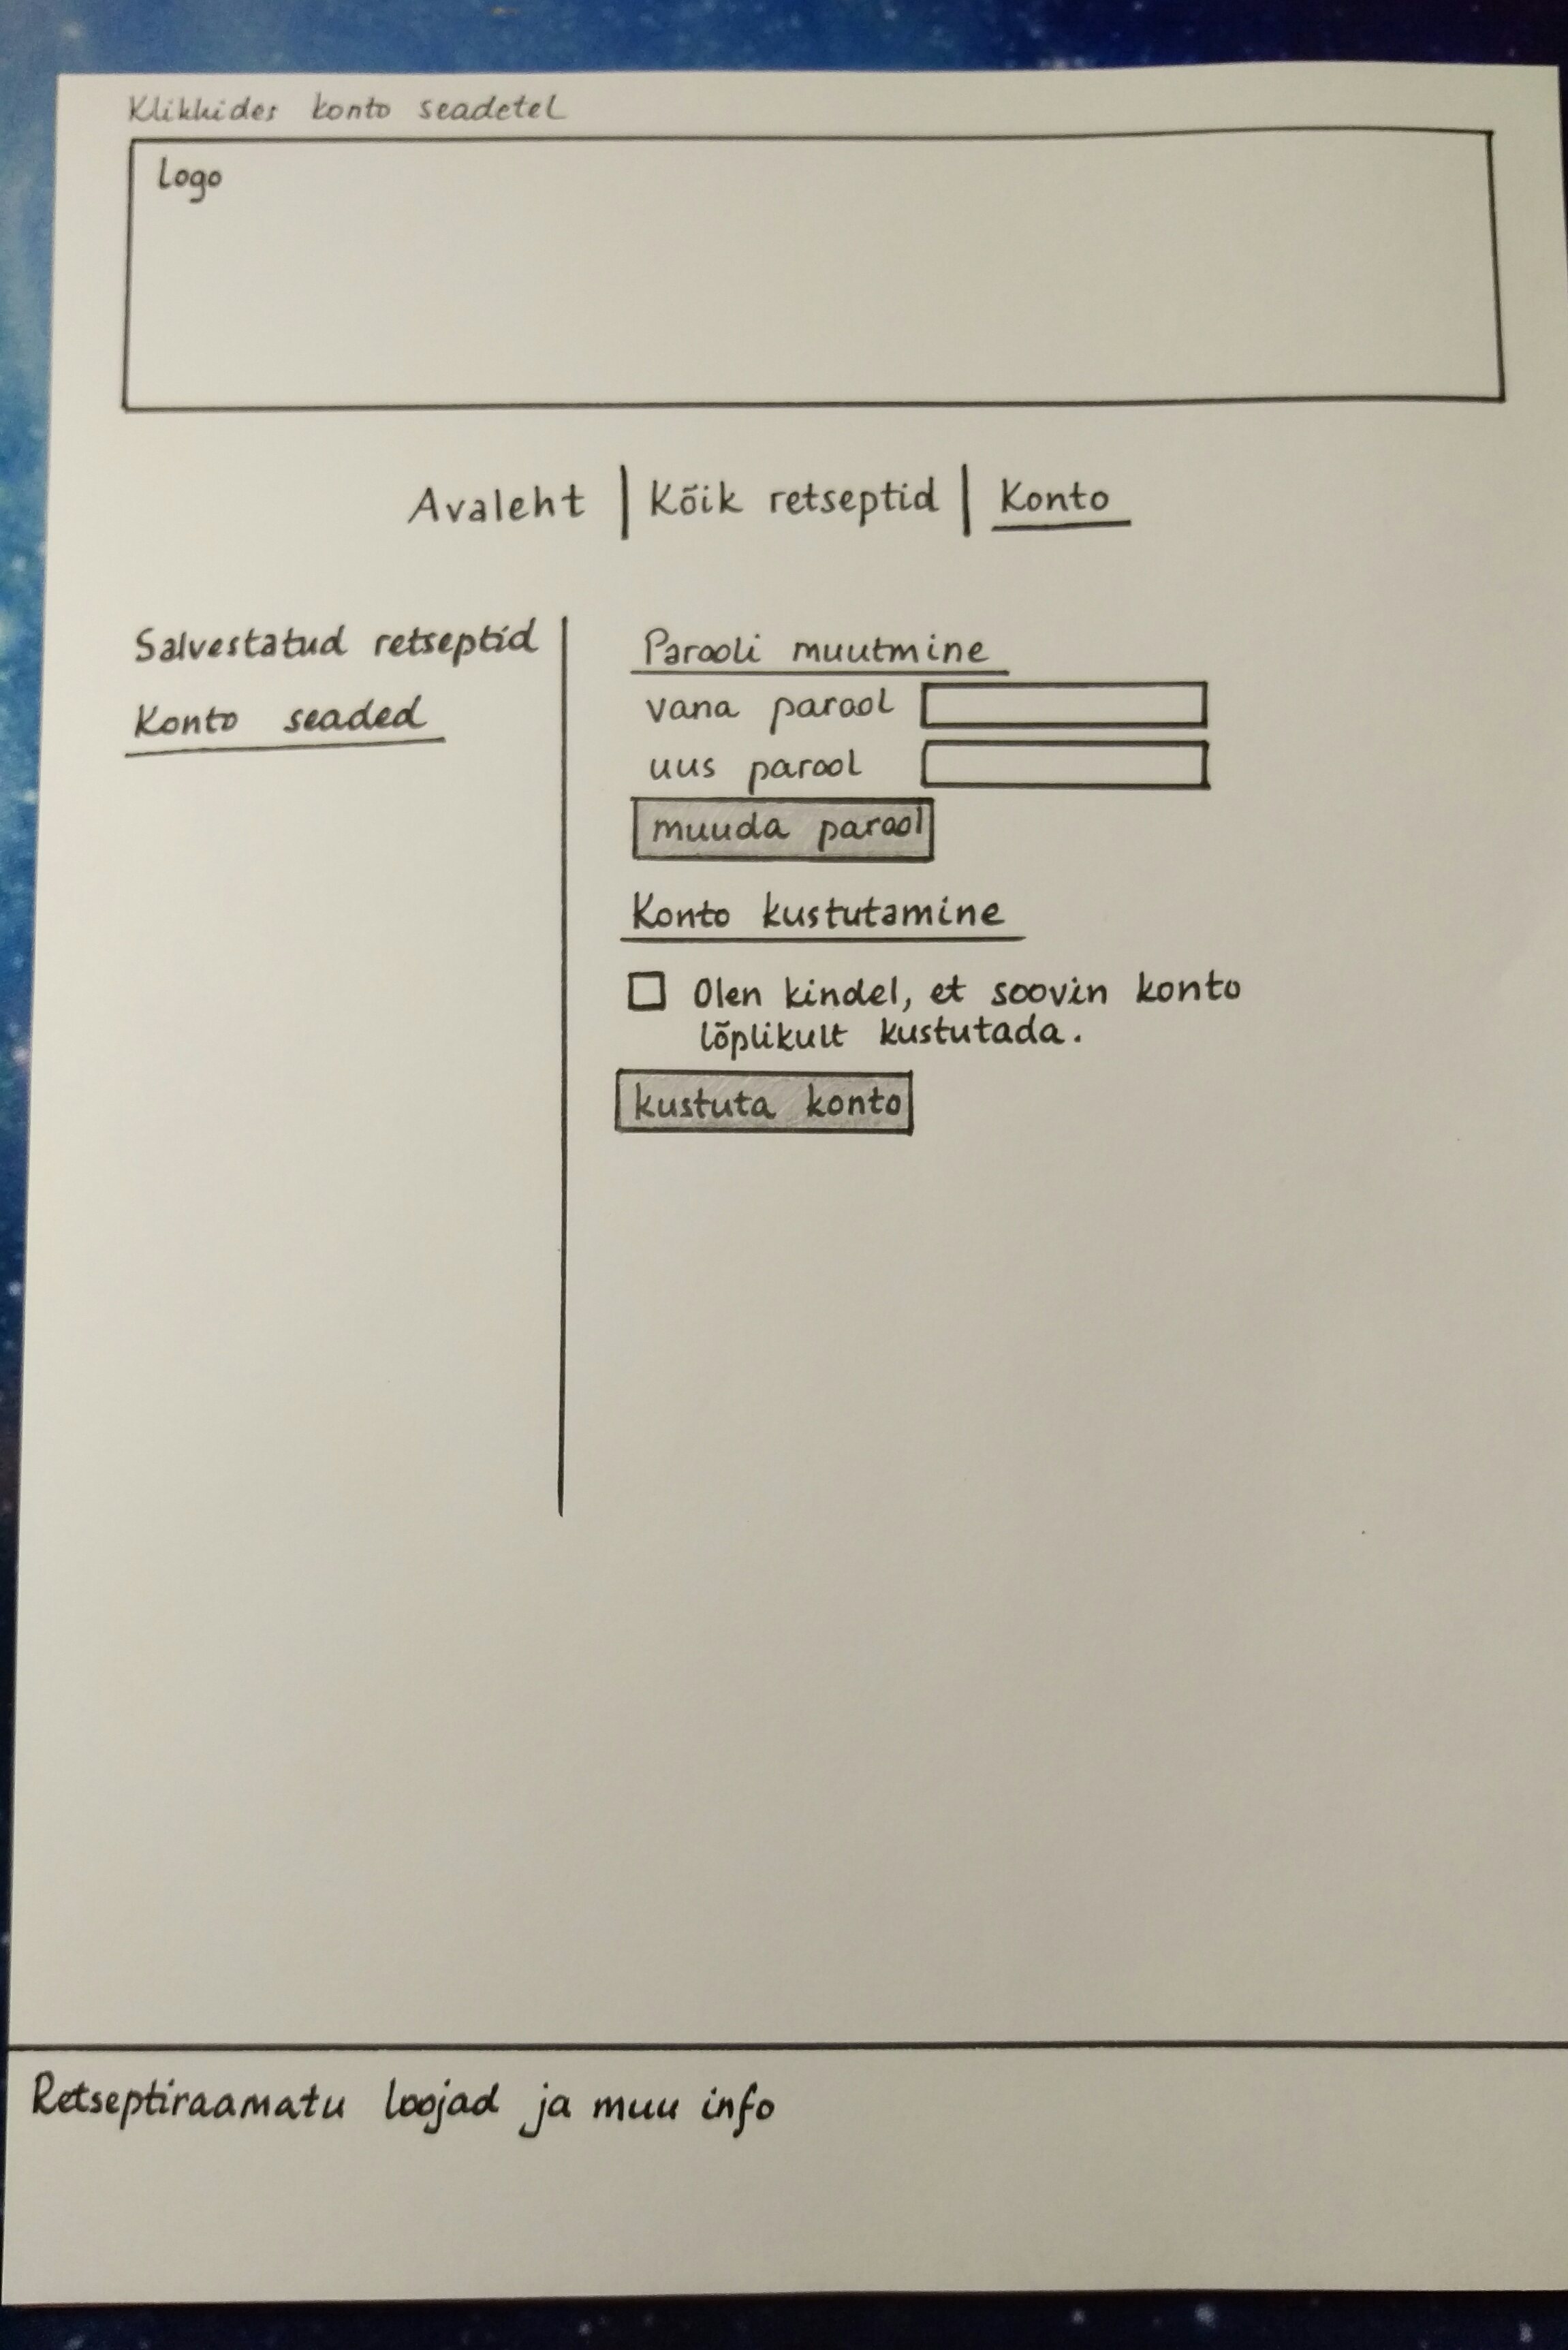 Klikkides konto seadetel
Logo
Avaleht | Kõik retseptid | Konto
Salvestatud retseptid
Konto seaded
Parooli muutmine
vana parool
uus parool
muuda parool
Konto kustutamine
Olen kindel, et soovin konto
lõplikult kustutada.
kustuta konto
Retseptiraamatu loojad ja muu info